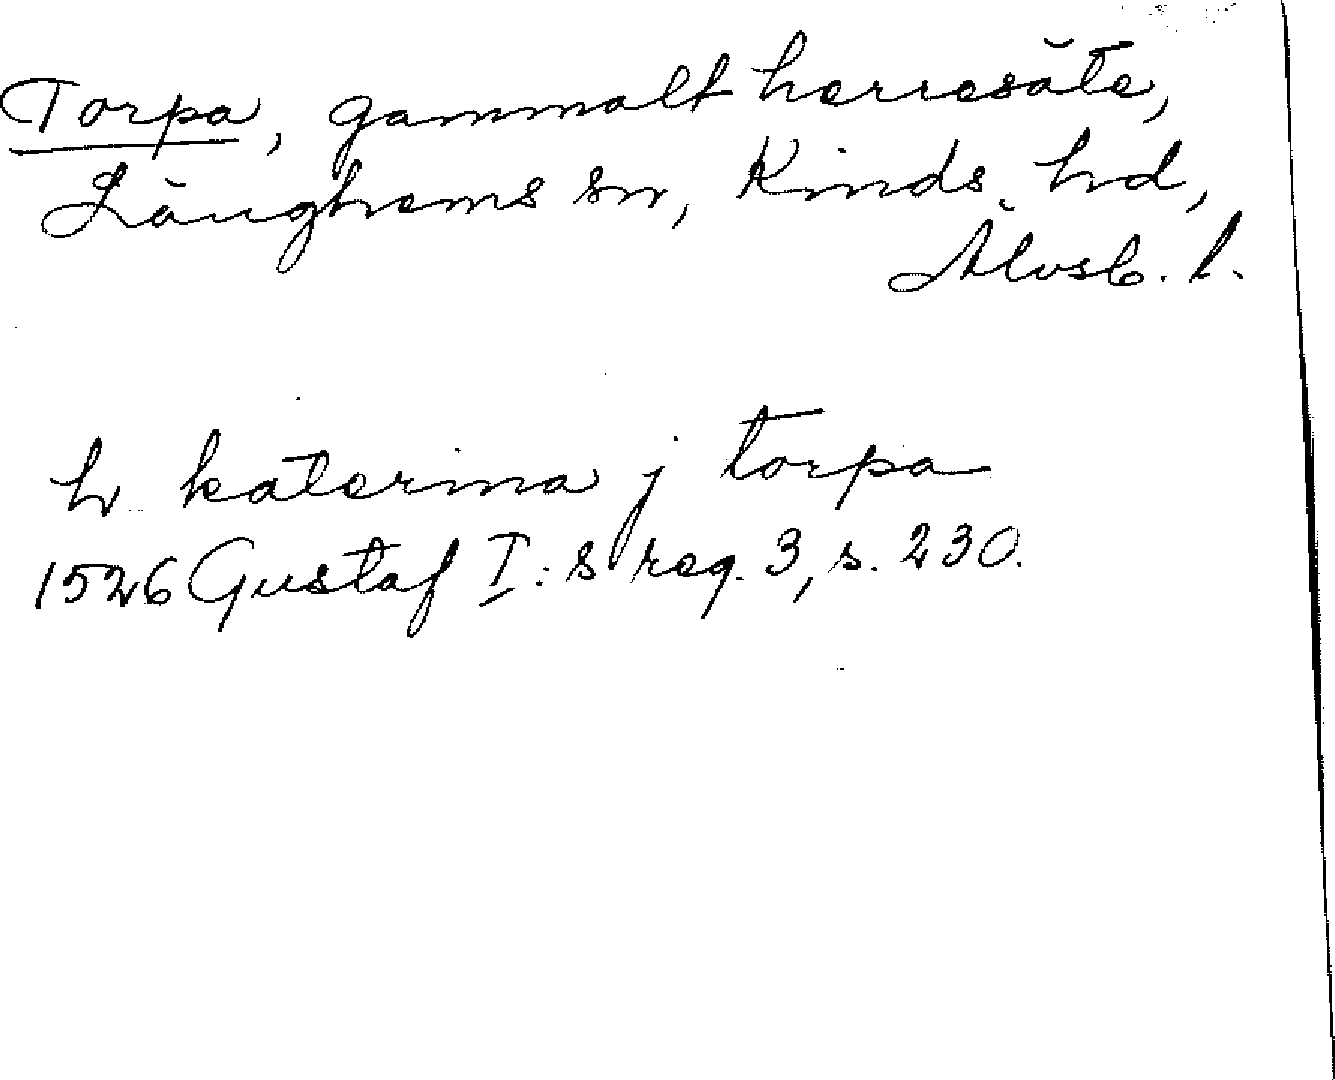 Torpa, gammalt herresäte,
Länghems sn, Kinds hd,
Älvsb. l.
h katerina j torpa
1526 Gustaf I:s reg. 3, s. 230.